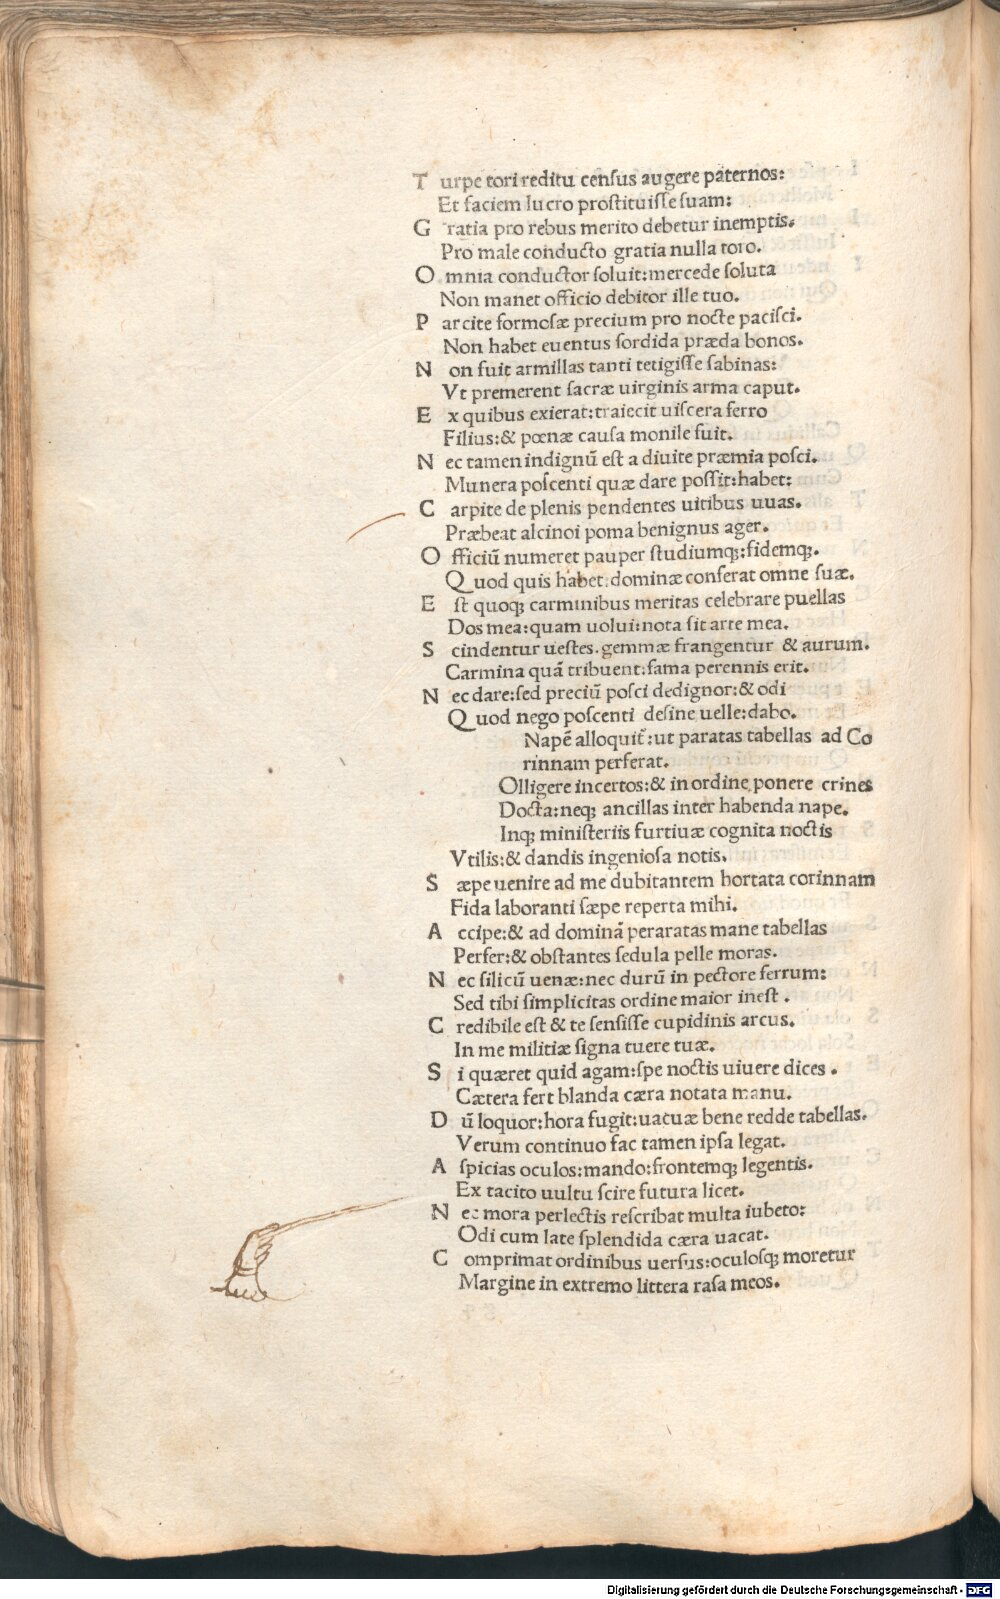 T urpe tori reditu census augere paternos:
Et faciem lucro prostituisse suam:
G ratia pro rebus merito debetur inemptis.
Pro male conducto gratia nulla toro.
O mnia conductor soluit: mercede soluta
Non manet officio debitor ille tuo.
P arcite formosæ precium pro nocte pacisci.
Non habet euentus sordida præda bonos.
N on fuit armillas tanti tetigisse sabinas:
Vt premerent sacræ uirginis arma caput.
E x quibus exierat: traiecit uiscera ferro
Filius: & pœnæ causa monile fuit.
N ec tamen indignũ est a diuite præmia posci.
Munera poscenti quæ dare possit: habet:
C arpite de plenis pendentes uitibus uuas.
Præbeat alcinoi poma benignus ager.
O fficiũ numeret pauper studiumq;: fidemq;.
Quod quis habet. dominæ conferat omne suæ.
E st quoq; carminibus meritas celebrare puellas
Dos mea: quam uolui: nota fit arte mea.
S cindentur uestes. gemmæ frangentur & aurum.
Carmina quã tribuent: fama perennis erit.
N ec dare: sed preciũ posci dedignor: & odi
Quod nego poscenti desine uelle: dabo.
Napẽ alloquit̃: ut paratas tabellas ad Co
rinnam perferat.
Olligere incertos: & in ordine ponere crines
Docta: neq; ancillas inter habenda nape.
Inq; ministeriis furtiuæ cognita noctis
Vtilis: & dandis ingeniosa notis.
S æpe uenire ad me dubitantem hortata corinnam
Fida laboranti sæpe reperta mihi.
A ccipe: & ad dominã peraratas mane tabellas
Perfer: & obstantes sedula pelle moras.
N ec silicũ uenæ: nec durũ in pectore ferrum:
Sed tibi simplicitas ordine maior inest.
C redibile est & te sensisse cupidinis arcus.
In me militiæ signa tuere tuæ.
S i quæret quid agam: spe noctis uiuere dices.
Cætera fert blanda cæra notata manu.
D ũ loquor: hora fugit: uacuæ bene redde tabellas.
Verum continuo fac tamen ipsa legat.
A spicias oculos: mando: frontemq; legentis.
Ex tacito uultu scire futura licet.
N ec mora perlectis rescribat multa iubeto:
Odi cum late splendida cæra uacat.
C omprimat ordinibus uersus: oculosq; moretur
Margine in extremo littera rasa meos.
Digitalisierung gefördert durch die Deutsche Forschungsgemeinschaft - DFG